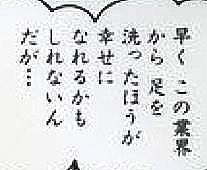 早く この業界
から 足を
洗ったほうが
幸せに
なれるかも
しれないん
だが…